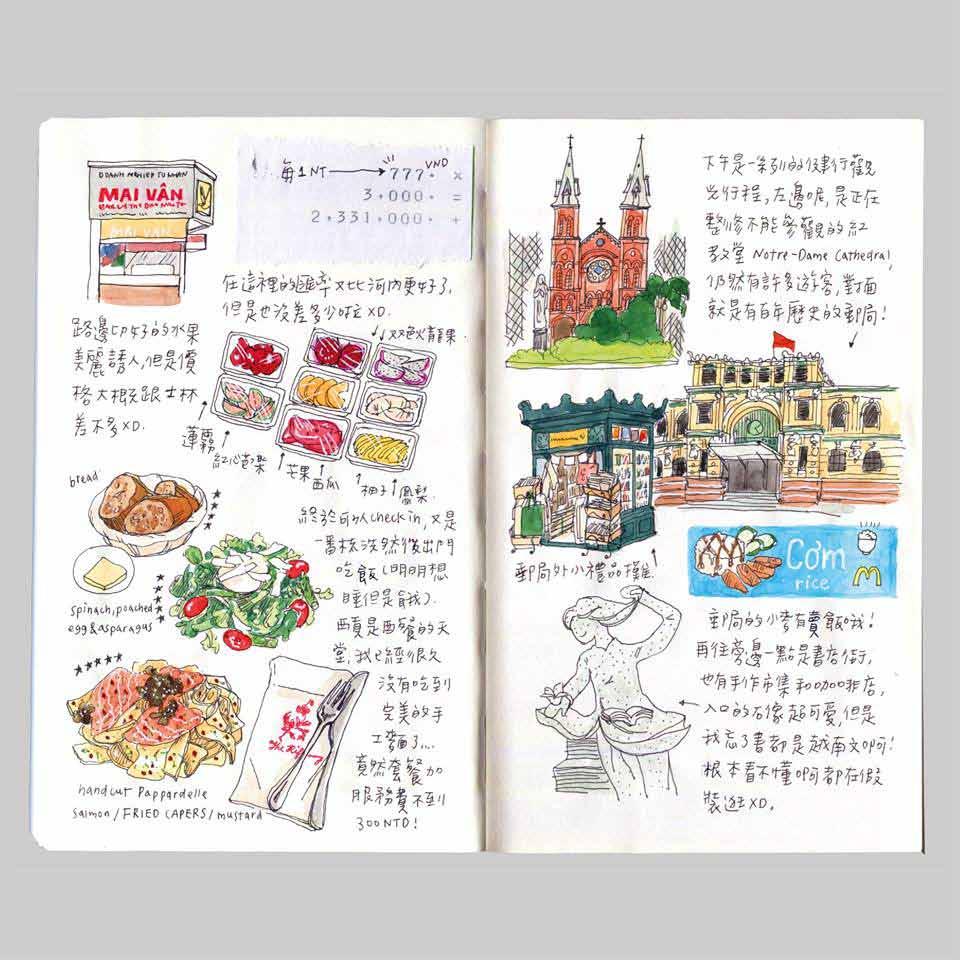 DOANH NGHIEP TU NHAN
MAI VÂN
MAI VAN
每1NT
777. VND ×
3.000. =
2.331.000. +
在這裡的匯率又比河內更好了,
但是也沒差多少啦XD.
路邊CP好的水果
美麗誘人,但是價
格大概跟士林
差不多XD.
双色火龍果.
蓮霧
紅心芭樂
芒果
西瓜
柚子
鳳梨.
bread
spinach, poached
egg & asparagus
終於可以check in, 又是
一番梳洗然後出門
吃飯(明明想
睡但是餓).
西貢是西餐的天
堂,我已經很久
沒有吃到
完美的手
工麵了...
竟然套餐加
服務費不到
300NTD!
handcut Pappardelle
salmon / FRIED CAPERS / mustard
下午是一系列的健行觀
光行程,左邊呢,是正在
整修不能參觀的紅
教堂 Notre-Dame Cathedral,
仍然有許多遊客,對面
就是有百年歷史的郵局!
郵局外小禮品攤.
Cơm
rice
郵局的小麥有賣飯哦!
再往旁邊一點是書店街,
也有手作市集和咖啡店,
入口的石像超可愛,但是
我忘了書都是越南文啊!
根本看不懂啊都在假
裝逛XD.